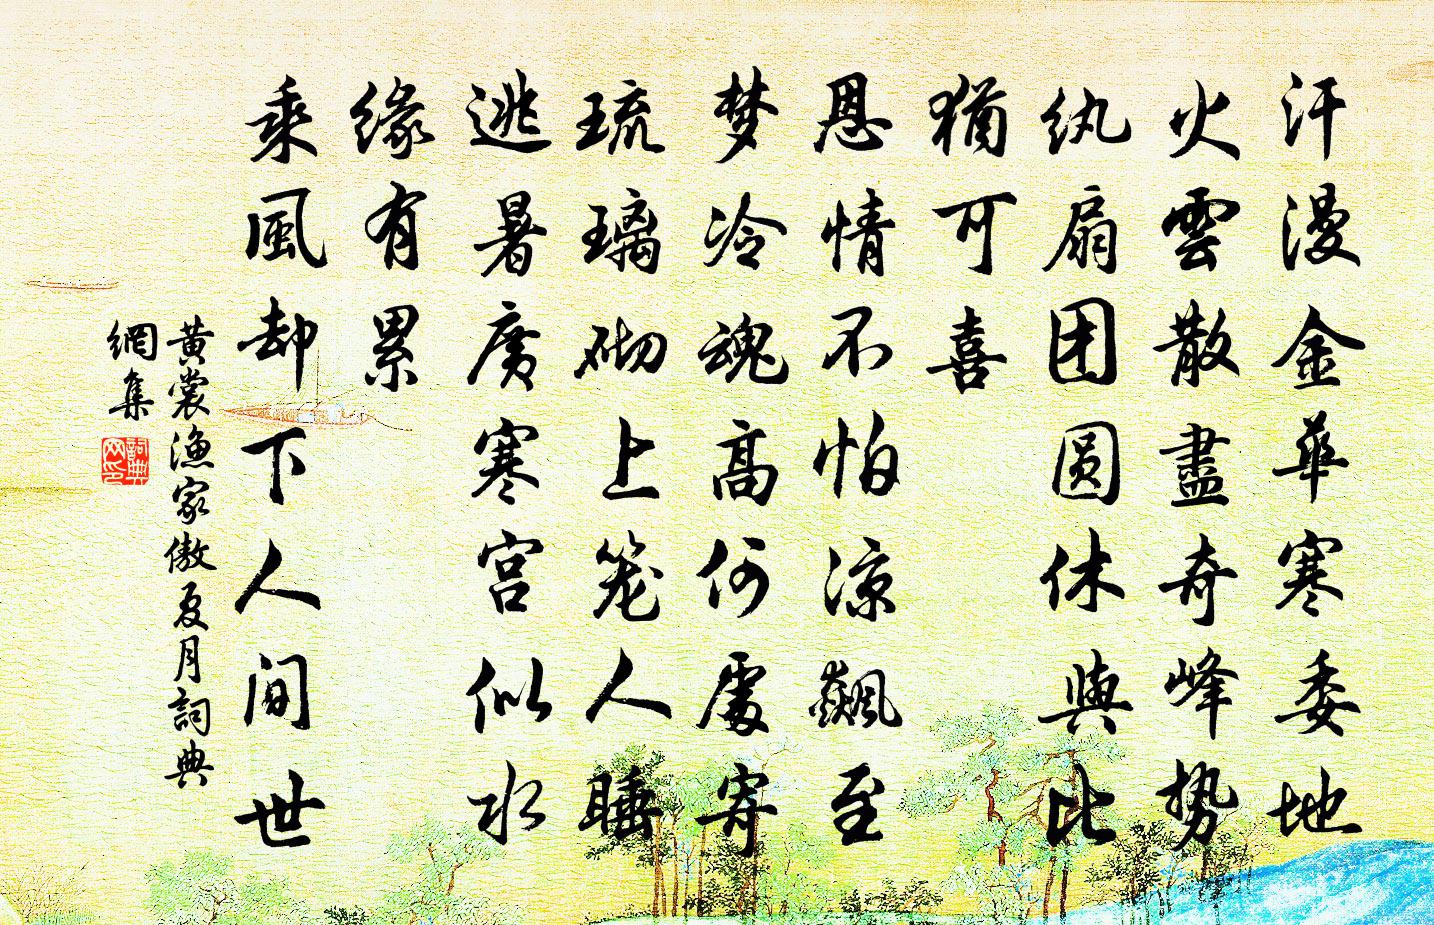 汗漫金華寒委地
火雲散盡奇峰势
纨扇团圆休與比
猶可喜
恩情不怕凉飊至
梦冷魂高何處寄
琉璃砌上笼人睡
逃暑廣寒宫似水
缘有累
乘風却下人间世
黄裳漁家傲夏月詞典
網集